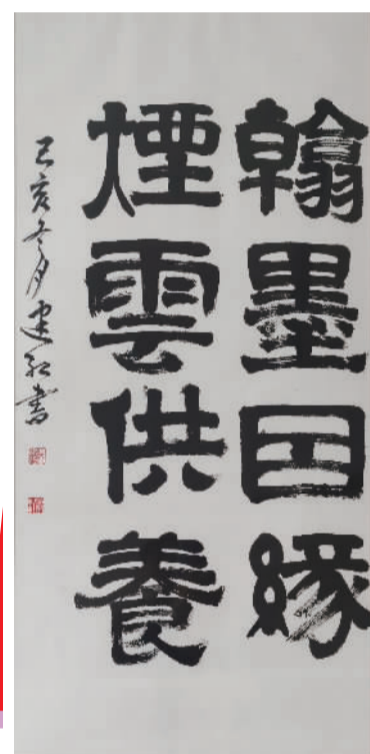 翰墨囙緣
煙雲供養
己亥冬月建红書